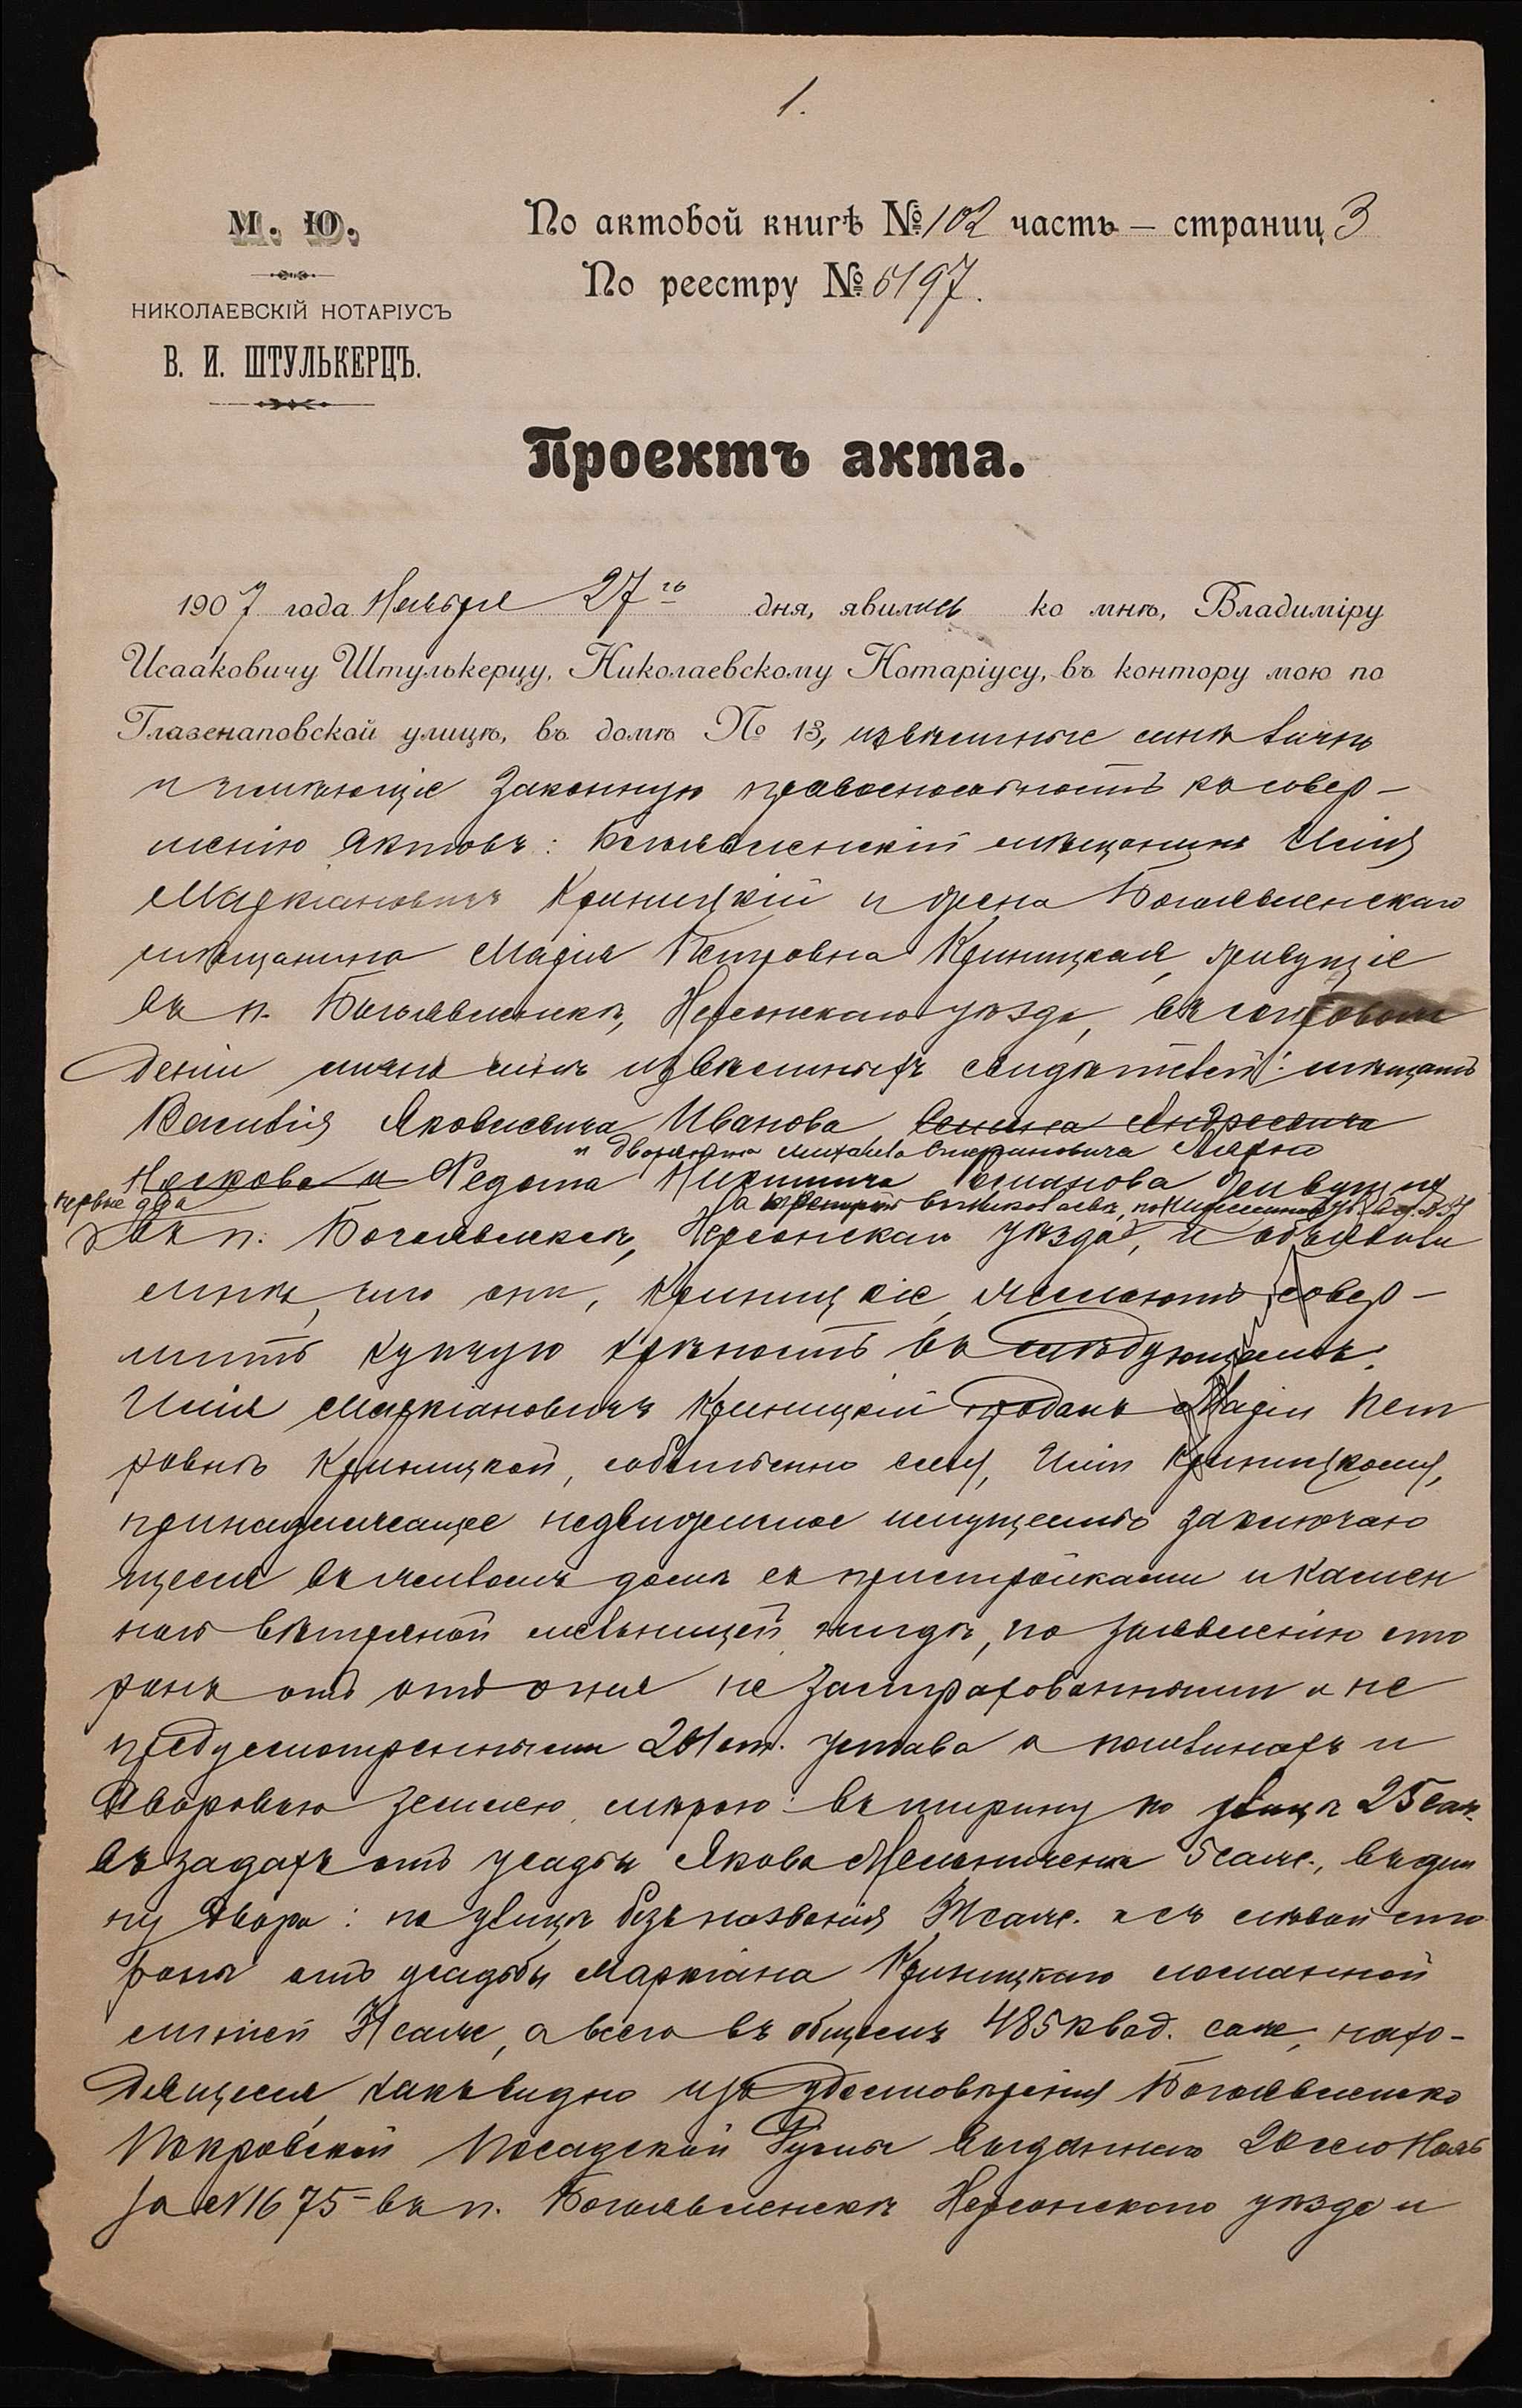 1.
М. Ю.
По актовой книгѣ № 102 часть — страниц 3
По реестру № 5197.
НИКОЛАЕВСКІЙ НОТАРІУСЪ
В. И. ШТУЛЬКЕРЦЪ.
Проектъ акта.
1907 года Ноября 27го дня, явились ко мнѣ, Владиміру
Исааковичу Штулькерцу, Николаевскому Нотаріусу, въ контору мою по
Глазенаповской улицѣ, въ домѣ № 13, извѣстные мнѣ лично
и имѣющіе законную правоспособность къ совер-
шенію актовъ: Богоявленскій мѣщанинъ Илія
Маркіановичъ Криницкій и жена Богоявленскаго
мѣщанина Марія Петровна Криницкая, живущіе
въ п. Богоявленскѣ, Херсонскаго уѣзда, въ сопровож
деніи лично мнѣ извѣстныхъ свидѣтелей: мѣщанъ
Василія Яковлевича Иванова Семена Андреевича
и дворянина Михаила
Носкова и Федота Никитича Романова живущихъ
первые два
а третій въ Николаевѣ, по
въ п. Богоявленскѣ, Херсонскаго уѣзда, и объявили
мнѣ, что они, Криницкіе, желаютъ совер-
шить купчую крѣпость въ слѣдующемъ:
Илія Маркіановичъ Криницкій продалъ Маріи Пет
ровнѣ Криницкой, собственно ему, Иліи Криницкому,
принадлежащее недвижимое имущество заключаю
щееся въ жиломъ домѣ съ пристройками и камен
ной вѣтряной мельницей нигдѣ, по заявленію сто
ронъ отъ отъ огня не застрахованными и не
предусмотренными 201 ст. устава о пошлинахъ и
дворовою землею мѣрою: въ ширину по улицѣ 25 саж.
въ задахъ отъ усадьбы Якова Мельниченка 5 саж., въ дли
ну двора: по улицѣ безъ названія саж. и съ лѣвой сто
роны отъ усадьбы Маркіана Криницкаго ломанной
линіей саж., а всего въ общемъ 485 квад. саж., нахо-
дящееся какъ видно изъ удостовѣренія Богоявленско
Покровской Посадской Думы выданнаго 20 сего Нояб
за №1675 — въ п. Богоявленскѣ Херсонскаго уѣзда и